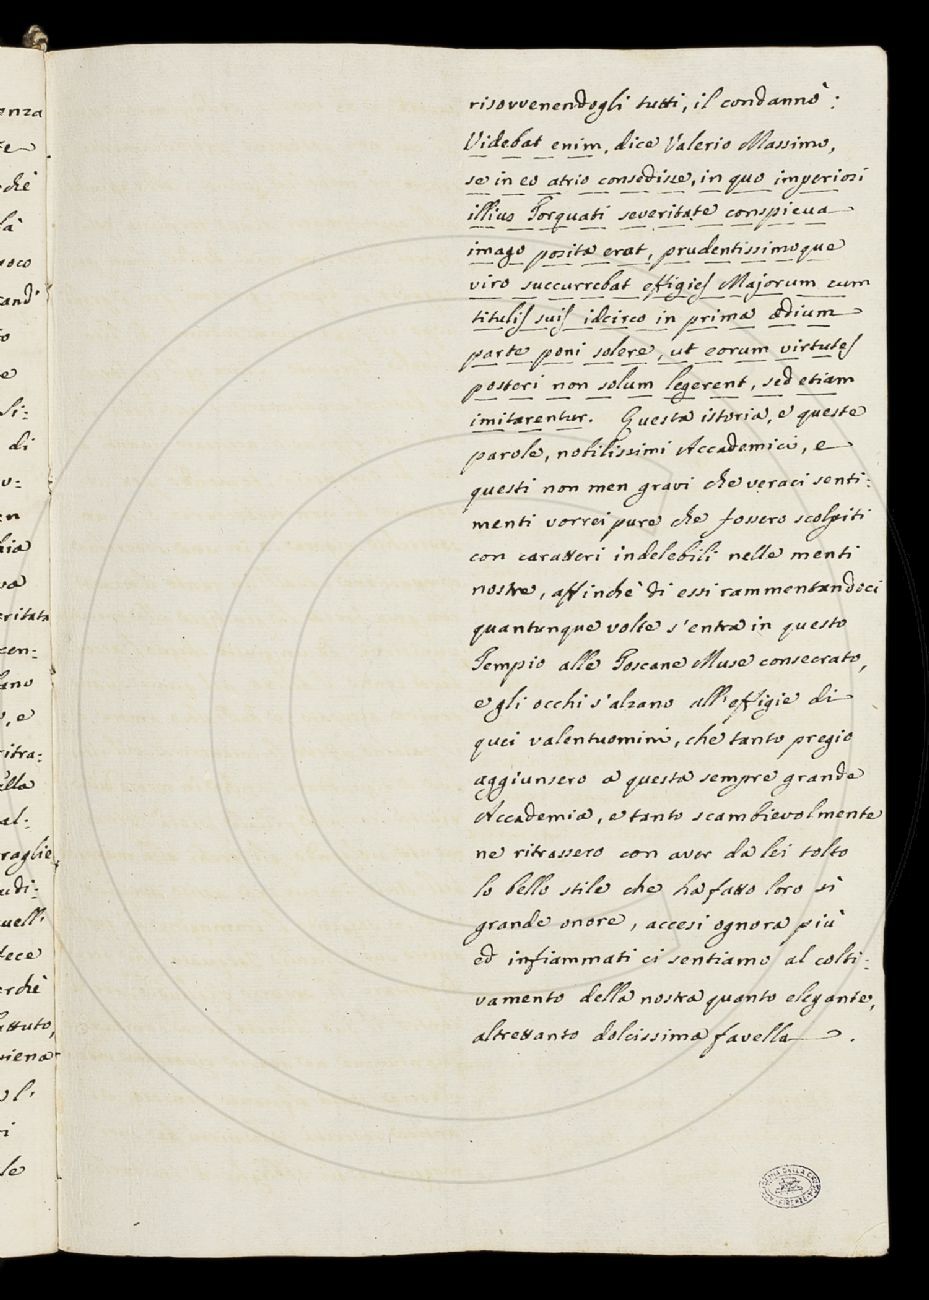 risovvenendogli tutti, il condannò:
Videbat enim, dice Valerio Massimo,
se in eo atrio consedisse, in quo imperiosi
illius Torquati severitate conspicua
imago posita erat, prudentissimoque
viro succurrebat effigies Majorum cum
titulis suis idcirco in prima ædium
parte poni solere, ut eorum virtutes
posteri non solum legerent, sed etiam
imitarentur. Questa istoria, e queste
parole, nobilissimi Accademici, e
questi non men gravi che veraci senti:
menti vorrei pure che fossero scolpiti
con caratteri indelebili nelle menti
nostre, affinchè di essi rammentandoci
quantunque volte s'entra in questo
Tempio alle Toscane Muse consecrato,
e gli occhi s'alzano all'effigie di
quei valentuomini, che tanto pregio
aggiunsero a questa sempre grande
Accademia, e tanto scambievolmente
ne ritrassero con aver da lei tolto
lo bello stile che ha fatto loro sì
grande onore, accesi ognora più
ed infiammati ci sentiamo al colti:
vamento della nostra quanto elegante,
altrettanto dolcissima favella.